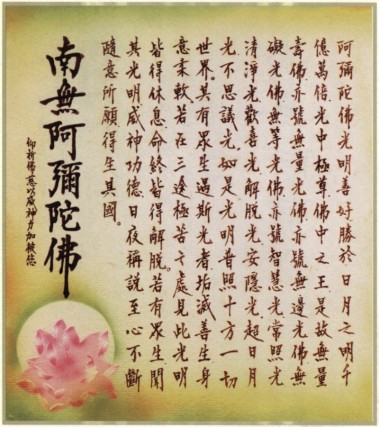 阿彌陀佛光明善好勝於日月之明千
億萬倍光中極尊佛中之王是故無量
壽佛亦號無量光佛亦號無邊光佛無
礙光佛無等光佛亦號智慧光常照光
清淨光歡喜光解脫光安隱光超日月
光不思議光如是光明普照十方一切
世界。其有眾生遇斯光者垢滅善生身
意柔軟若在三途極苦之處見此光明
皆得休息命終皆得解脫。若有眾生聞
其光明威神功德日夜稱說至心不斷
隨意所願得生其國。
南無阿彌陀佛
仰祈佛慈以威神力加被您